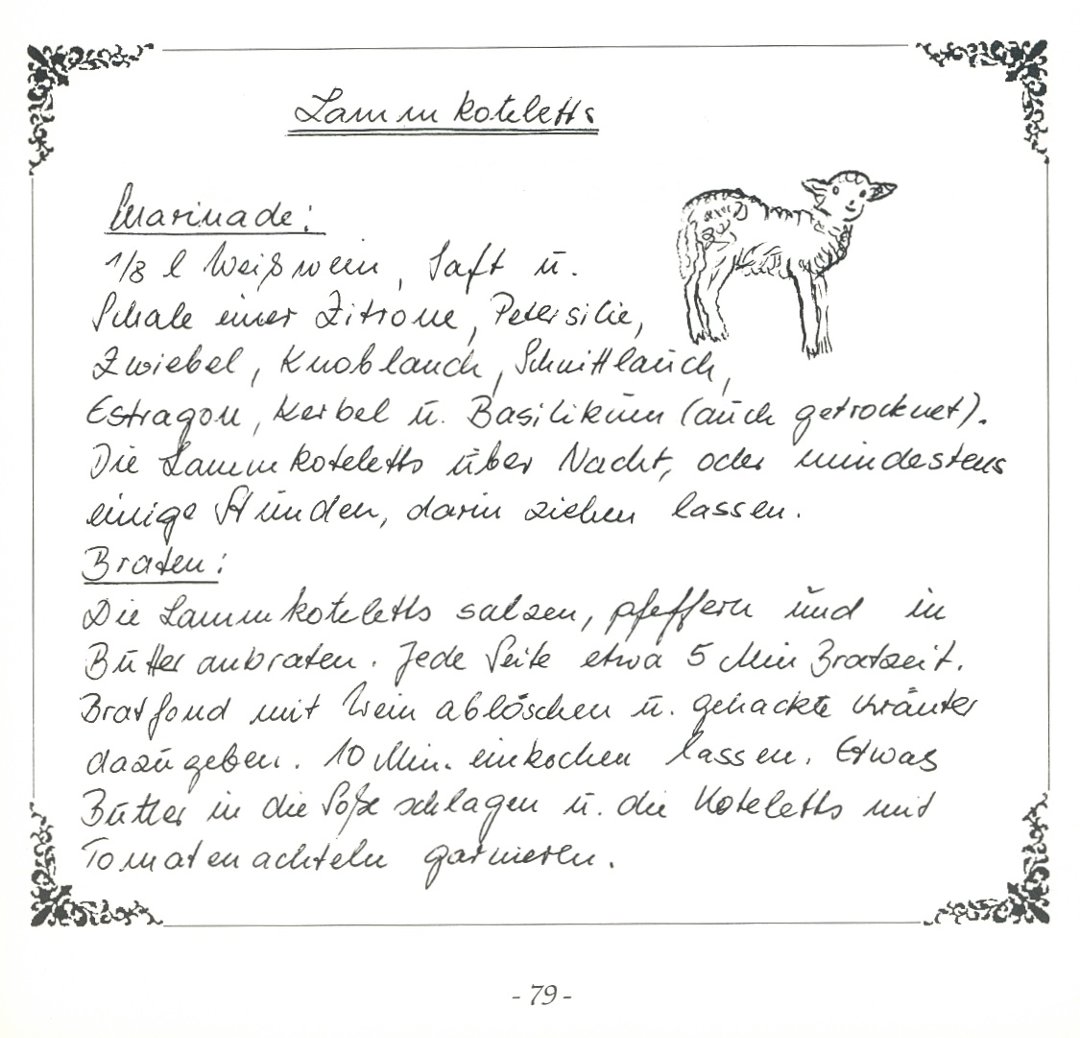 Lammkoteletts
Marinade:
1/8 l Weißwein, Saft u.
Schale einer Zitrone, Petersilie,
Zwiebel, Knoblauch, Schnittlauch,
Estragon, Kerbel u. Basilikum (auch getrocknet).
Die Lammkoteletts über Nacht, oder mindestens
einige Stunden, darin ziehen lassen.
Braten:
Die Lammkoteletts salzen, pfeffern und in
Butter anbraten. Jede Seite etwa 5 Min Bratzeit.
Bratfond mit Wein ablöschen u. gehackte Kräuter
dazugeben. 10 Min. einkochen lassen. Etwas
Butter in die Soße schlagen u. die Koteletts mit
Tomatenachteln garnieren.
- 79 -